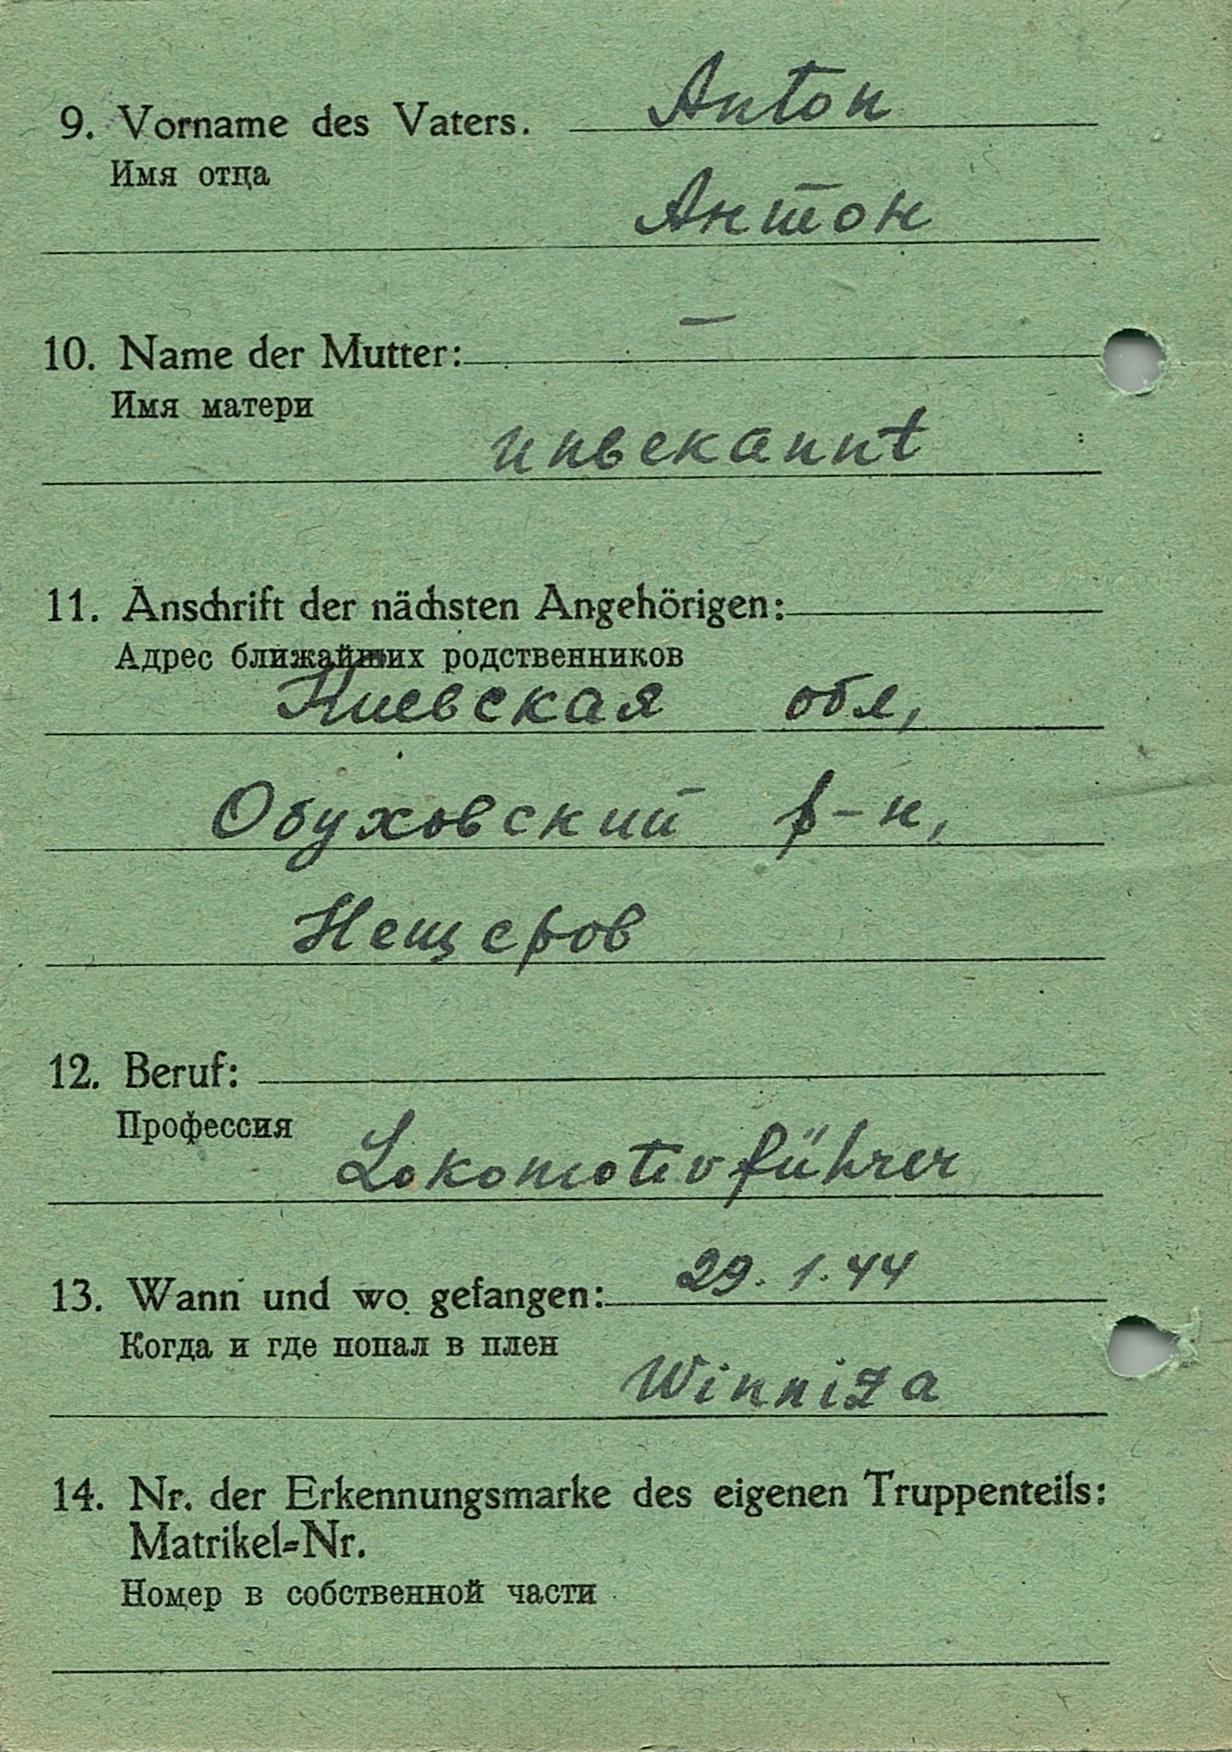 9. Vorname des Vaters. Anton
Имя отца
Антон
10. Name der Mutter: —
Имя матери
unbekannt
11. Anschrift der nächsten Angehörigen:
Адрес ближайших родственников
Киевская обл,
Обуховский р-н,
Нещеров
12. Beruf:
Профессия
Lokomotivführer
13. Wann und wo gefangen: 29.1.44
Когда и где попал в плен
Winniza
14. Nr. der Erkennungsmarke des eigenen Truppenteils:
Matrikel-Nr.
Номер в собственной части